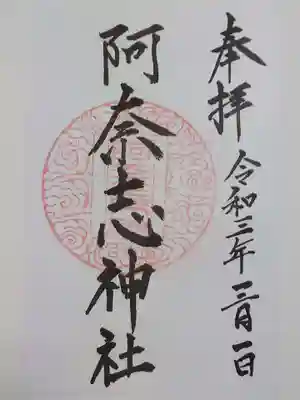 奉拝 令和三年三月一日
阿奈志神社